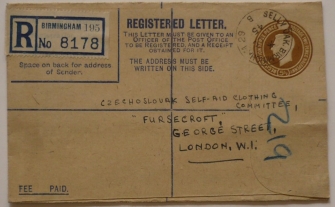 BIRMINGHAM 195
R No 8178
Space on back for address
of Sender.
REGISTERED LETTER.
THIS LETTER MUST BE GIVEN TO AN
OFFICER OF THE POST OFFICE
TO BE REGISTERED, AND A RECEIPT
OBTAINED FOR IT.
THE ADDRESS MUST BE
WRITTEN ON THIS SIDE.
CZECHOSLOVAK SELF-AID CLOTHING
COMMITTEE,
"FURSECROFT,
GEORGE STREET,
LONDON, W.1.
912
FEE PAID.